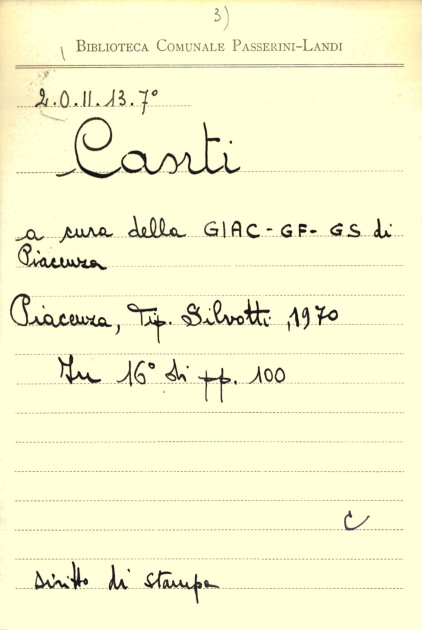 3)
BIBLIOTECA COMUNALE PASSERINI-LANDI
2.O.II.13.7°
Canti
a cura della GIAC-GF-GS di
Piacenza
Piacenza, Tip. Silvotti, 1970
In 16° di pp. 100
C
diritto di stampa